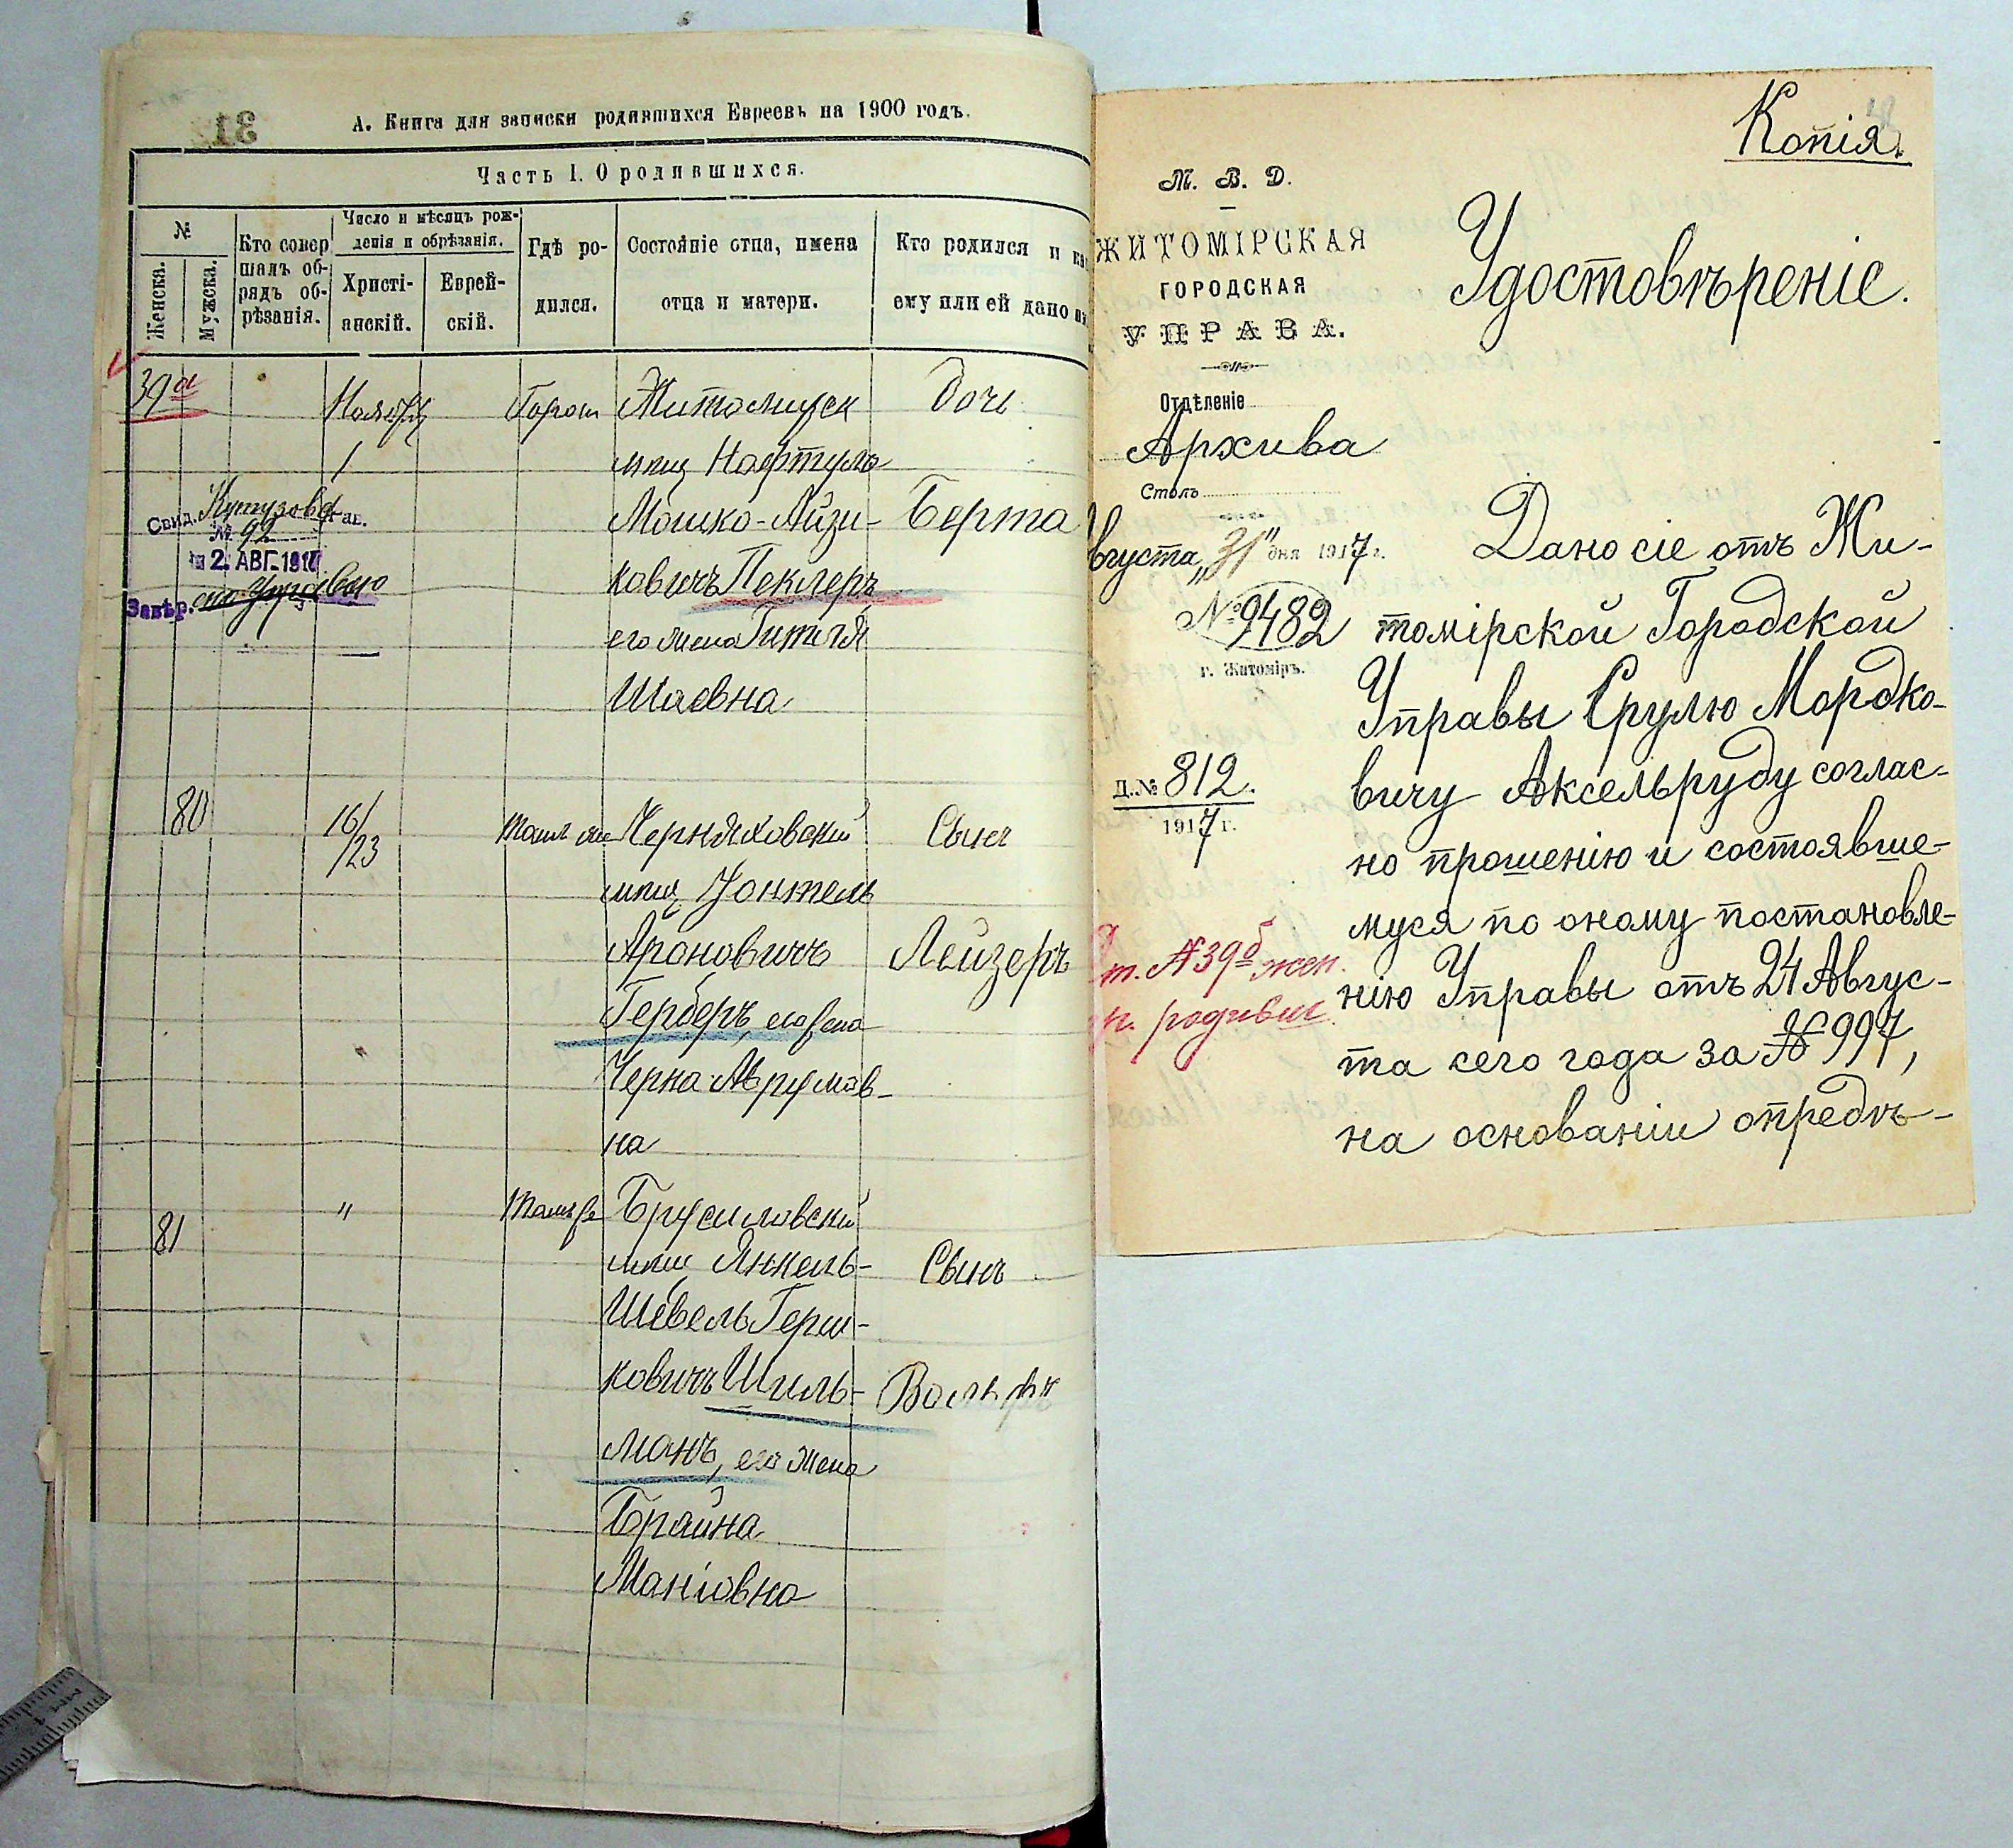 31
А. Книга для записки родившихся Евреевъ на 1900 годъ.
Часть I. О родившихся.
№
Женска.
Мужска.
Кто совер
шалъ об-
рядъ об-
рѣзанія.
Число и мѣсяцъ рож-
денія и обрѣзанія.
Христі-
анскій.
Еврей-
скій.
Гдѣ ро-
дился.
Состояніе отца, имена
отца и матери.
Кто родился и ка
ему или ей дано
39а
Ноября
1
Житомирск
Дочь
мѣщ Нафтула
Мошко-Айзи-
Берта
ковичъ Пеклеръ
его жена Гитля
Шаевна
Свид. Кутузова Рав.
№ 92
2. АВГ. 191
Завѣр.
80
16/
/23
Черняховскій
Сынъ
мѣщ
Ароновичъ
Лейзеръ
Герберъ, его жена
Черна Аврумов-
на
81
"
Брусиловскій
мѣщ Янкель-
Сынъ
Шевель Герш-
ковичъ Шиль-
Вольфъ
манъ, его жена
Брайна
Маніовна
Копія.
М. В. Д.
ЖИТОМІРСКАЯ
ГОРОДСКАЯ
УПРАВА.
Отдѣленіе
Архива
Столъ
вгуста „31" дня 1917 г.
№ 9482
г. Житоміръ.
Д. № 812.
1917 г.
т. № 39б жен.
ч. родивш.
Удостовѣреніе.
Дано сіе отъ Жи-
томірской Городской
Управы Срулю Мордко-
вичу Аксельруду соглас-
но прошенію и состоявше-
муся по оному постановле-
нію Управы отъ 24 Авгус-
та сего года за № 997,
на основаніи опредѣ-